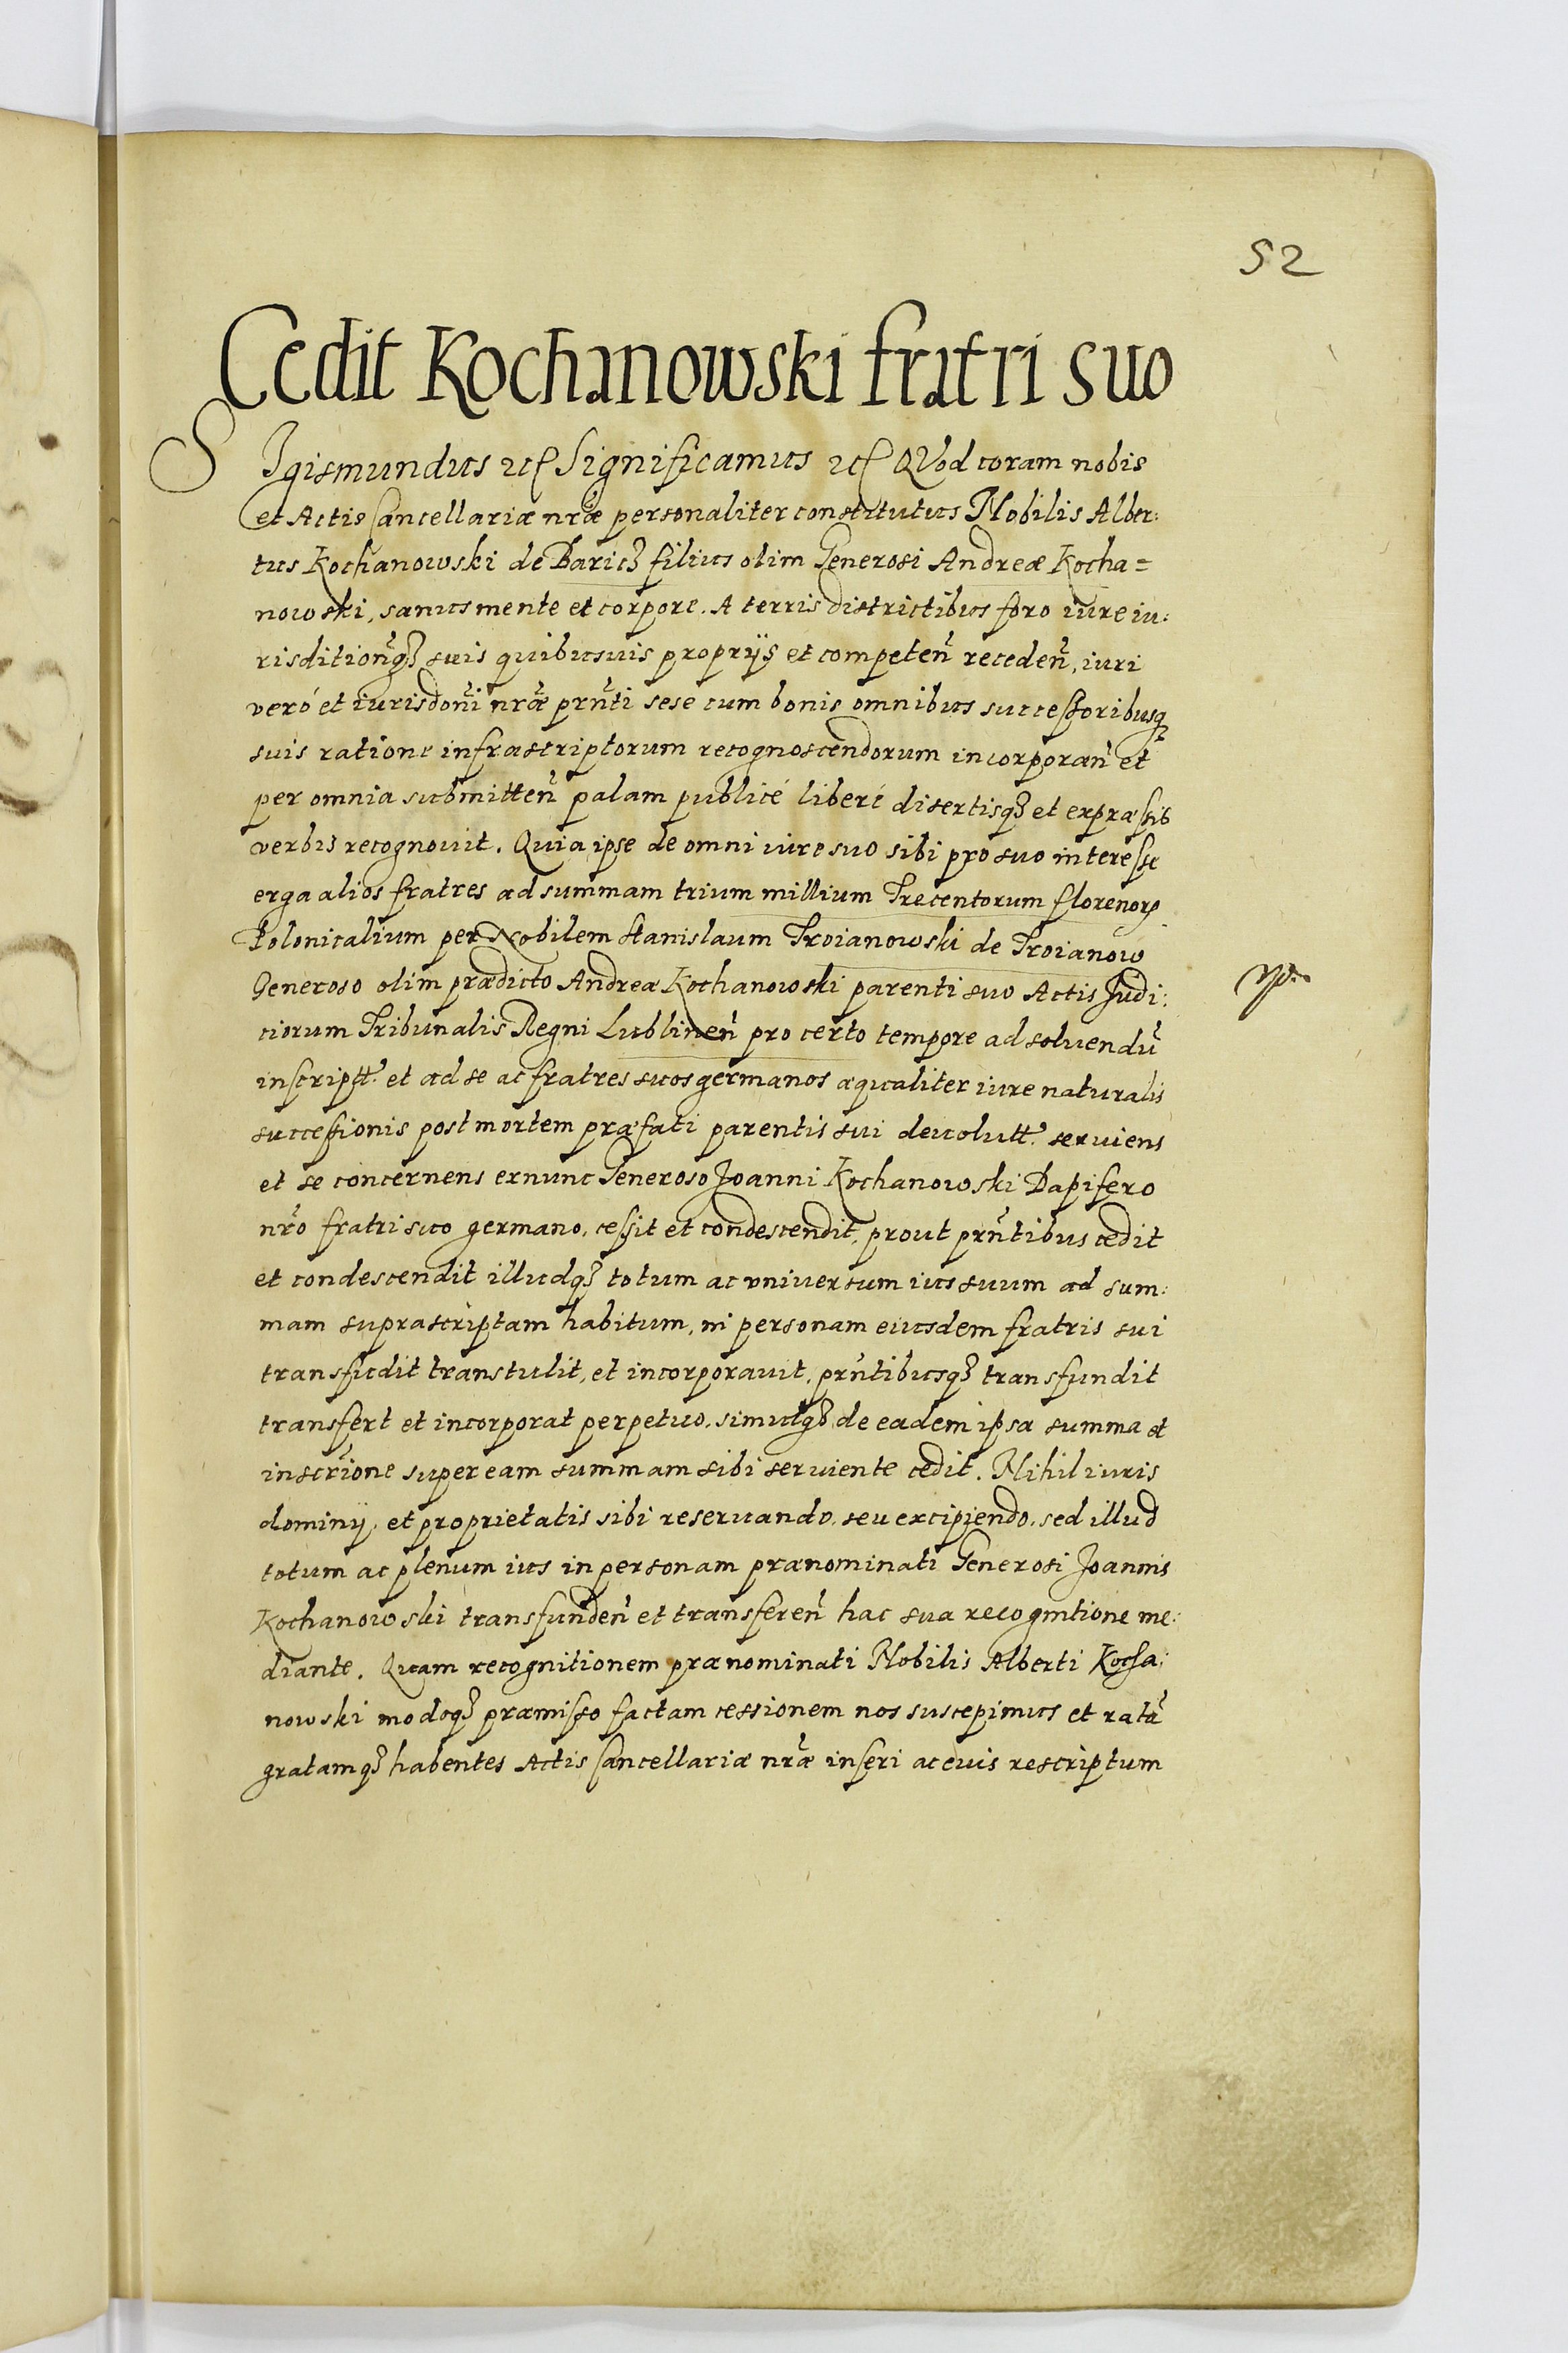 52
Cedit Kochanowski fratri suo
SIgismundus etc Significamus etc QVod coram nobis
et Actis Cancellariæ nr̃æ personaliter constitutus Nobilis Alber:
tus Kochanowski de Baricz filius olim Generosi Andreæ Kocha=
nowski, sanus mente et corpore. A terris districtibus foro iure iu:
risditionq̃ suis quibusuis proprijs et competeñ recedeñ, iuri
veró et iurisdoñi nr̃æ prñti sese cum bonis omnibus successoribusq
suis ratione infrascriptorum recognoscendorum incorporañ et
per omnia submitteñ palam publicé liberé disertisqȝ et expræssis
verbis recognouit. Quia ipse de omni iure suo sibi pro suo interesse
erga alios fratres ad summam trium millium Trecentorum florenorꝝ
Polonicalium per Nobilem Stanislaum Troianowski de Troianow
Generoso olim prædicto Andreæ Kochanowski parenti suo Actis Judi:
ciorum Tribunalis Regni Lublineñ pro certo tempore ad soluendũ
inscriptt. et ad se ac fratres suos germanos æqualiter iure naturalis
successionis post mortem præfati parentis sui deuolutt. seruiens
et se concernens exnunc Generoso Joanni Kochanowski Dapifero
nr̃o fratri suo germano, cessit et condescendit, prout prñtibus cedit
et condescendit illudqȝ totum ac vniuersum ius suum ad sum:
mam suprascriptam habitum, in personam eiusdem fratris sui
transfudit transtulit, et incorporauit, prñtibusqȝ transfundit
transfert et incorporat perpetuo, simulqȝ de eadem ipsa summa et
inscrĩone super eam summam sibi seruiente cedit. Nihil iuris
dominij, et proprietatis sibi reseruando, seu excipiendo, sed illud
totum ac plenum ius in personam prænominati Generosi Joannis
Kochanowski transfundeñ et transfereñ hac sua recognitione me:
diante. Quam recognitionem prænominati Nobilis Alberti Kocha:
nowski modoqȝ præmisso factam cessionem nos suscepimus et ratã
gratamqȝ habentes Actis Cancellariæ nr̃æ inseri ac euis rescriptum